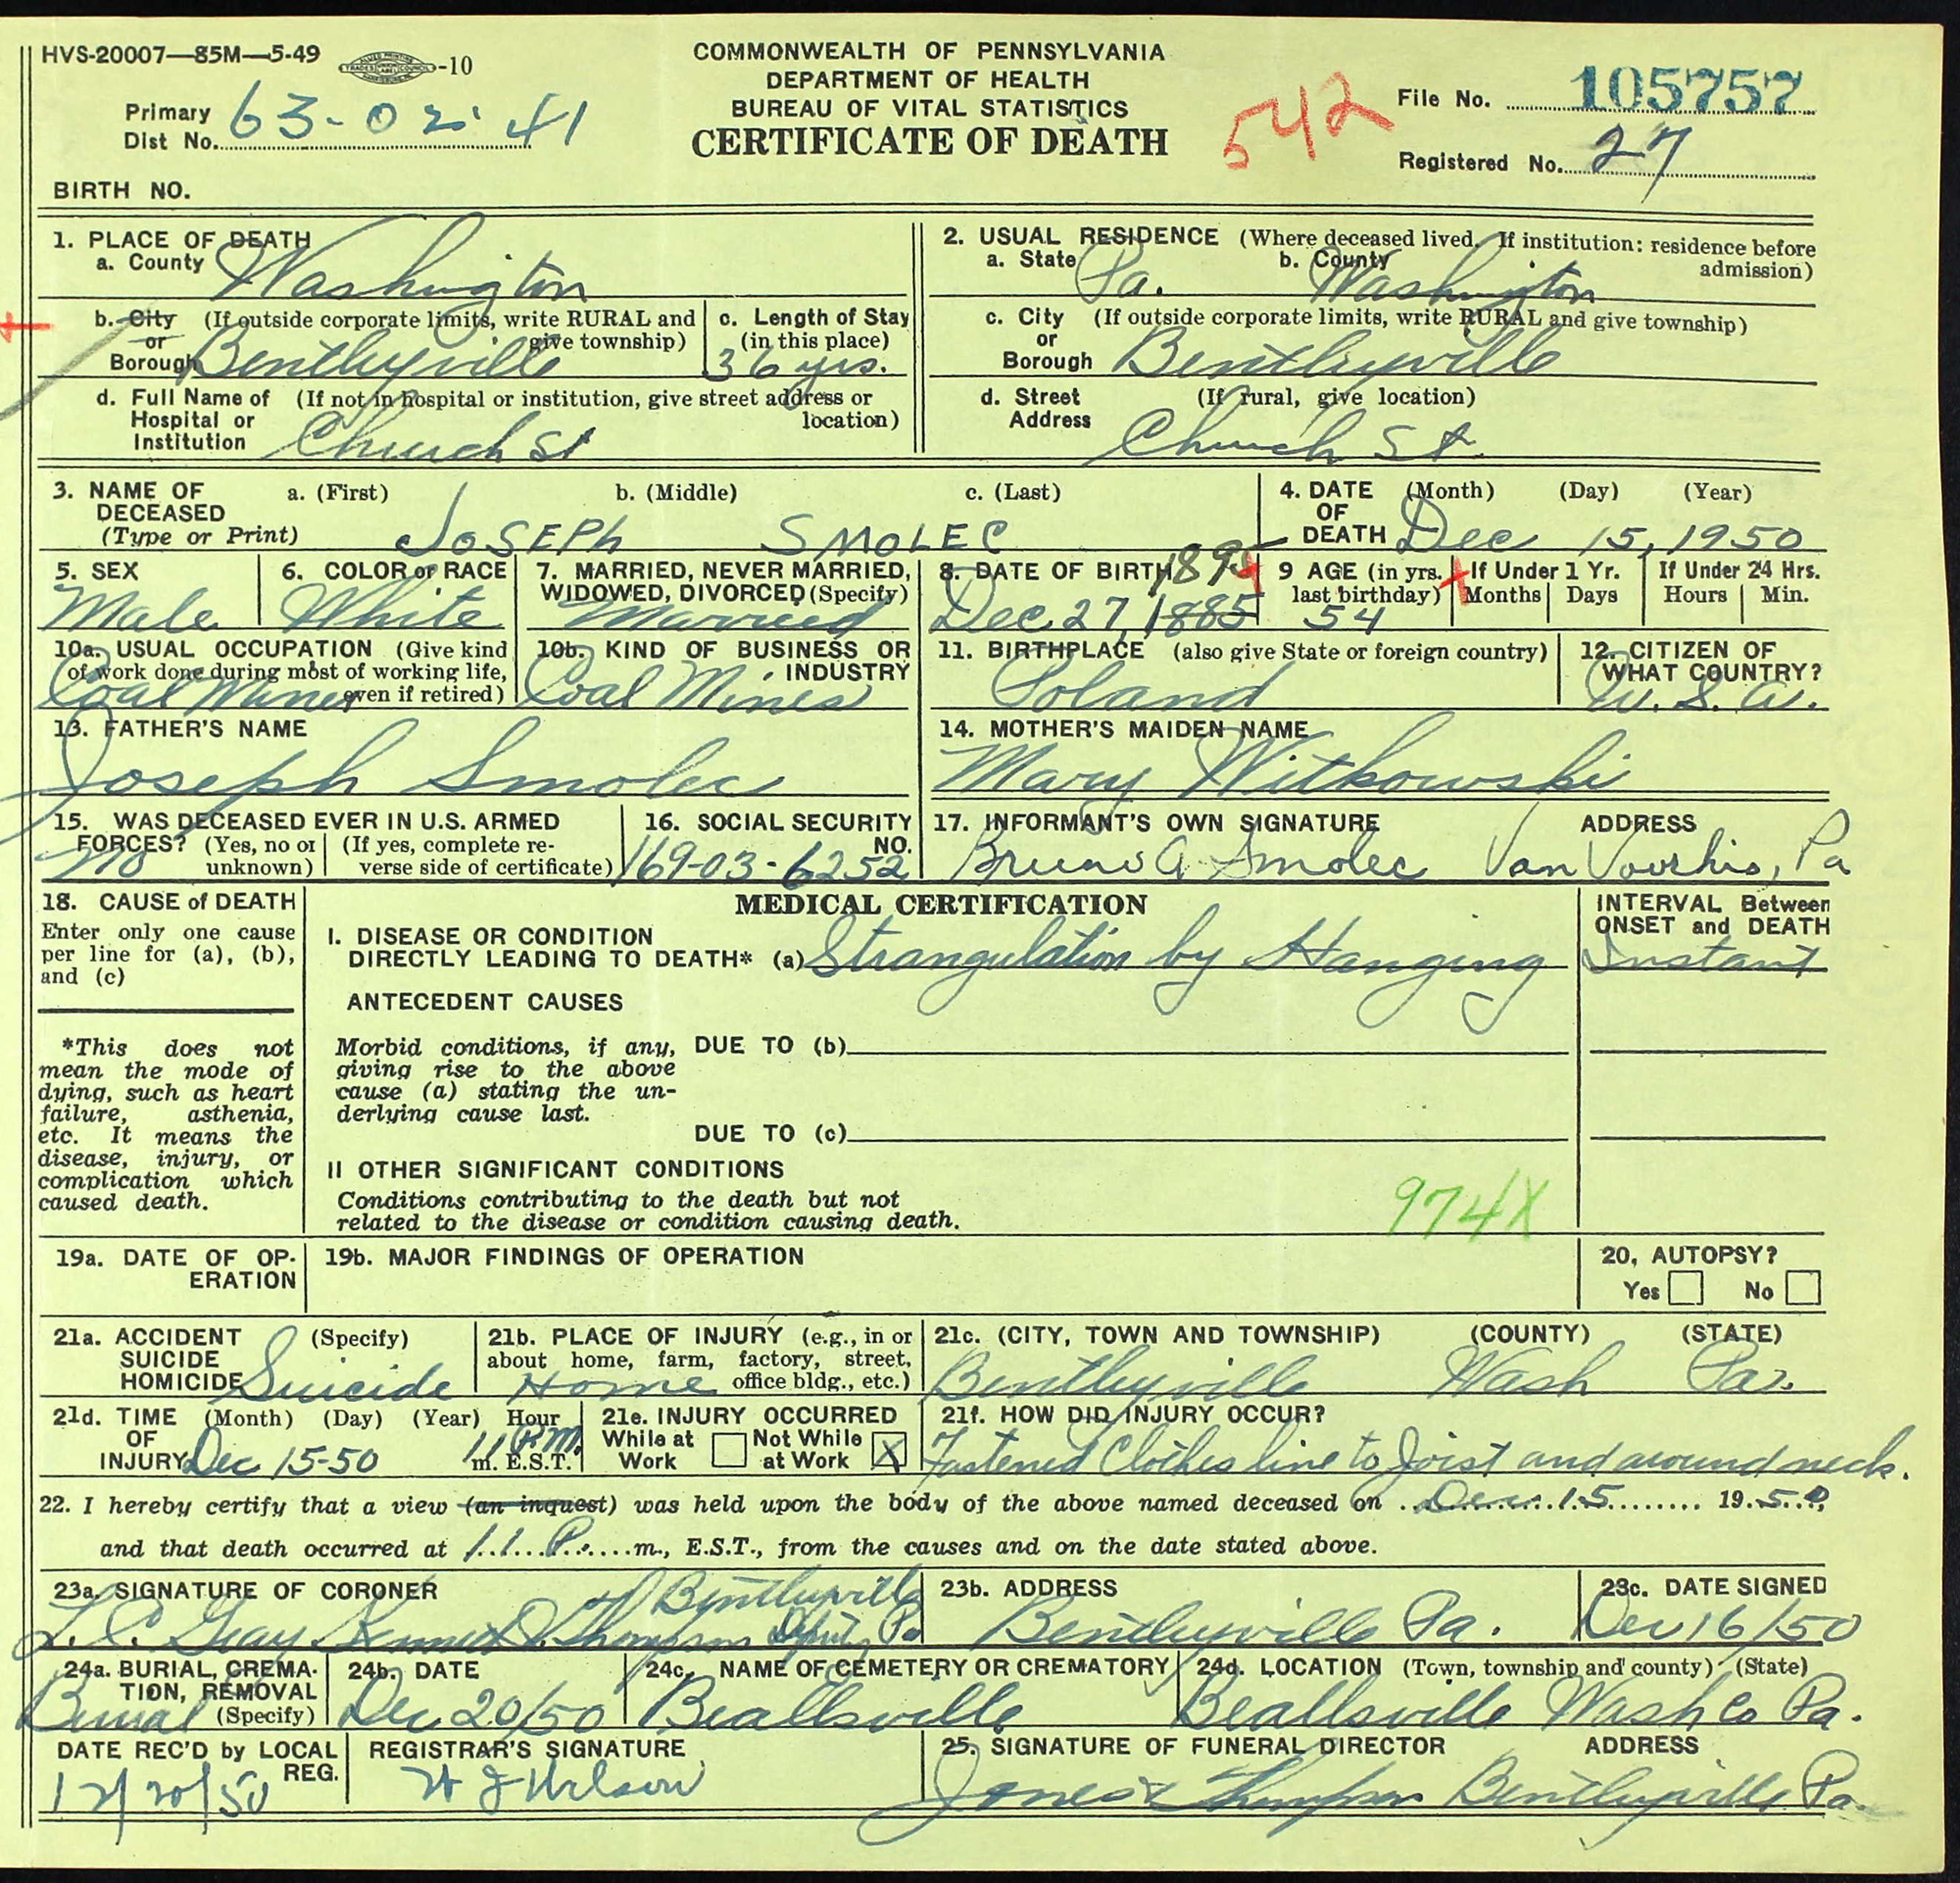 HVS-20007—85M—5-49 -10
COMMONWEALTH OF PENNSYLVANIA
DEPARTMENT OF HEALTH
BUREAU OF VITAL STATISTICS
CERTIFICATE OF DEATH
Primary
Dist No. 63-02-41
542
File No. 105757
Registered No. 27
BIRTH NO.
1. PLACE OF DEATH
a. County Washington
b. City (If outside corporate limits, write RURAL and
or give township)
Borough Bentleyville
c. Length of Stay
(in this place)
36 yrs.
d. Full Name of (If not in hospital or institution, give street address or
Hospital or location)
Institution Church St
2. USUAL RESIDENCE (Where deceased lived. If institution: residence before
admission)
a. State Pa. b. County Washington
c. City (If outside corporate limits, write RURAL and give township)
or
Borough Bentleyville
d. Street (If rural, give location)
Address Church St.
3. NAME OF a. (First) b. (Middle) c. (Last)
DECEASED
(Type or Print) JOSEPH SMOLEC
4. DATE (Month) (Day) (Year)
OF
DEATH Dec 15, 1950
5. SEX
Male
6. COLOR or RACE
White
7. MARRIED, NEVER MARRIED,
WIDOWED, DIVORCED (Specify)
Married
8. DATE OF BIRTH
Dec. 27, 1885
9 AGE (in yrs.
last birthday)
54
If Under 1 Yr.
Months Days
If Under 24 Hrs.
Hours Min.
10a. USUAL OCCUPATION (Give kind
of work done during most of working life,
even if retired)
Coal Miner
10b. KIND OF BUSINESS OR
INDUSTRY
Coal Mines
11. BIRTHPLACE (also give State or foreign country)
Poland
12. CITIZEN OF
WHAT COUNTRY?
U.S.A.
13. FATHER'S NAME
Joseph Smolec
14. MOTHER'S MAIDEN NAME
Mary Witkowski
15. WAS DECEASED EVER IN U.S. ARMED
FORCES? (Yes, no or (If yes, complete re-
unknown) verse side of certificate)
no
16. SOCIAL SECURITY
NO.
169-03-6252
17. INFORMANT'S OWN SIGNATURE ADDRESS
Bruno A. Smolec Van Voorhis, Pa
18. CAUSE of DEATH
Enter only one cause
per line for (a), (b),
and (c)
*This does not
mean the mode of
dying, such as heart
failure, asthenia,
etc. It means the
disease, injury, or
complication which
caused death.
MEDICAL CERTIFICATION
I. DISEASE OR CONDITION
DIRECTLY LEADING TO DEATH* (a) Strangulation by Hanging
ANTECEDENT CAUSES
Morbid conditions, if any, DUE TO (b)
giving rise to the above
cause (a) stating the un-
derlying cause last.
DUE TO (c)
II OTHER SIGNIFICANT CONDITIONS
Conditions contributing to the death but not
related to the disease or condition causing death.
974X
INTERVAL Between
ONSET and DEATH
Instant
19a. DATE OF OP-
ERATION
19b. MAJOR FINDINGS OF OPERATION
20, AUTOPSY?
Yes No
21a. ACCIDENT (Specify)
SUICIDE
HOMICIDE Suicide
21b. PLACE OF INJURY (e.g., in or
about home, farm, factory, street,
office bldg., etc.)
Home
21c. (CITY, TOWN AND TOWNSHIP) (COUNTY) (STATE)
Bentleyville Wash Pa.
21d. TIME (Month) (Day) (Year) Hour
OF
INJURY Dec 15-50 11 P.M.
m. E.S.T.
21e. INJURY OCCURRED
While at Not While
Work at Work X
21f. HOW DID INJURY OCCUR?
Fastened Clothes line to Joist and around neck.
22. I hereby certify that a view (an inquest) was held upon the body of the above named deceased on Dec. 15 1950,
and that death occurred at 11 P. m., E.S.T., from the causes and on the date stated above.
23a. SIGNATURE OF CORONER
Bentleyville
L. C. Gray Thompson Deputy Pa
23b. ADDRESS
Bentleyville Pa.
23c. DATE SIGNED
Dec 16/50
24a. BURIAL, CREMA-
TION, REMOVAL
(Specify)
Burial
24b. DATE
Dec 20/50
24c. NAME OF CEMETERY OR CREMATORY
Beallsville
24d. LOCATION (Town, township and county) (State)
Beallsville Wash Co Pa.
DATE REC'D by LOCAL
REG.
12/20/50
REGISTRAR'S SIGNATURE
Wilson
25. SIGNATURE OF FUNERAL DIRECTOR ADDRESS
Jones & Thompson Bentleyville Pa.